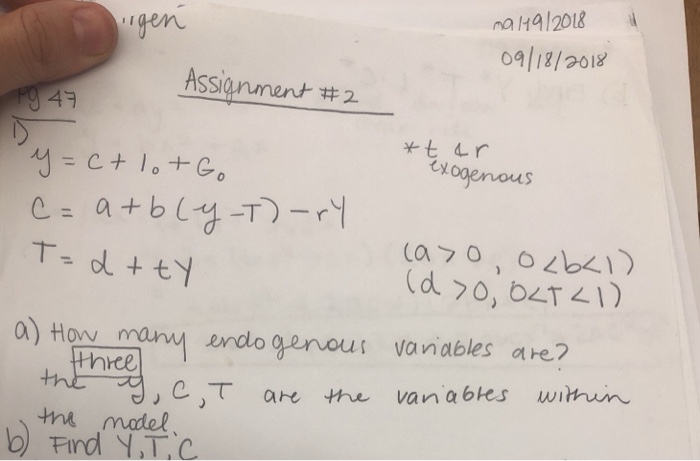 09/19/2018
09/18/2018
Assignment #2
Pg 47
1)
y = c + I₀ + G₀
*t & r
exogenous
C = a + b (y - T) - rY
T = d + tY
(a > 0, 0 < b < 1)
(d > 0, 0 < T < 1)
a) How many endogenous variables are?
three
the y, C, T are the variables within
the model.
b) Find Y, T, C